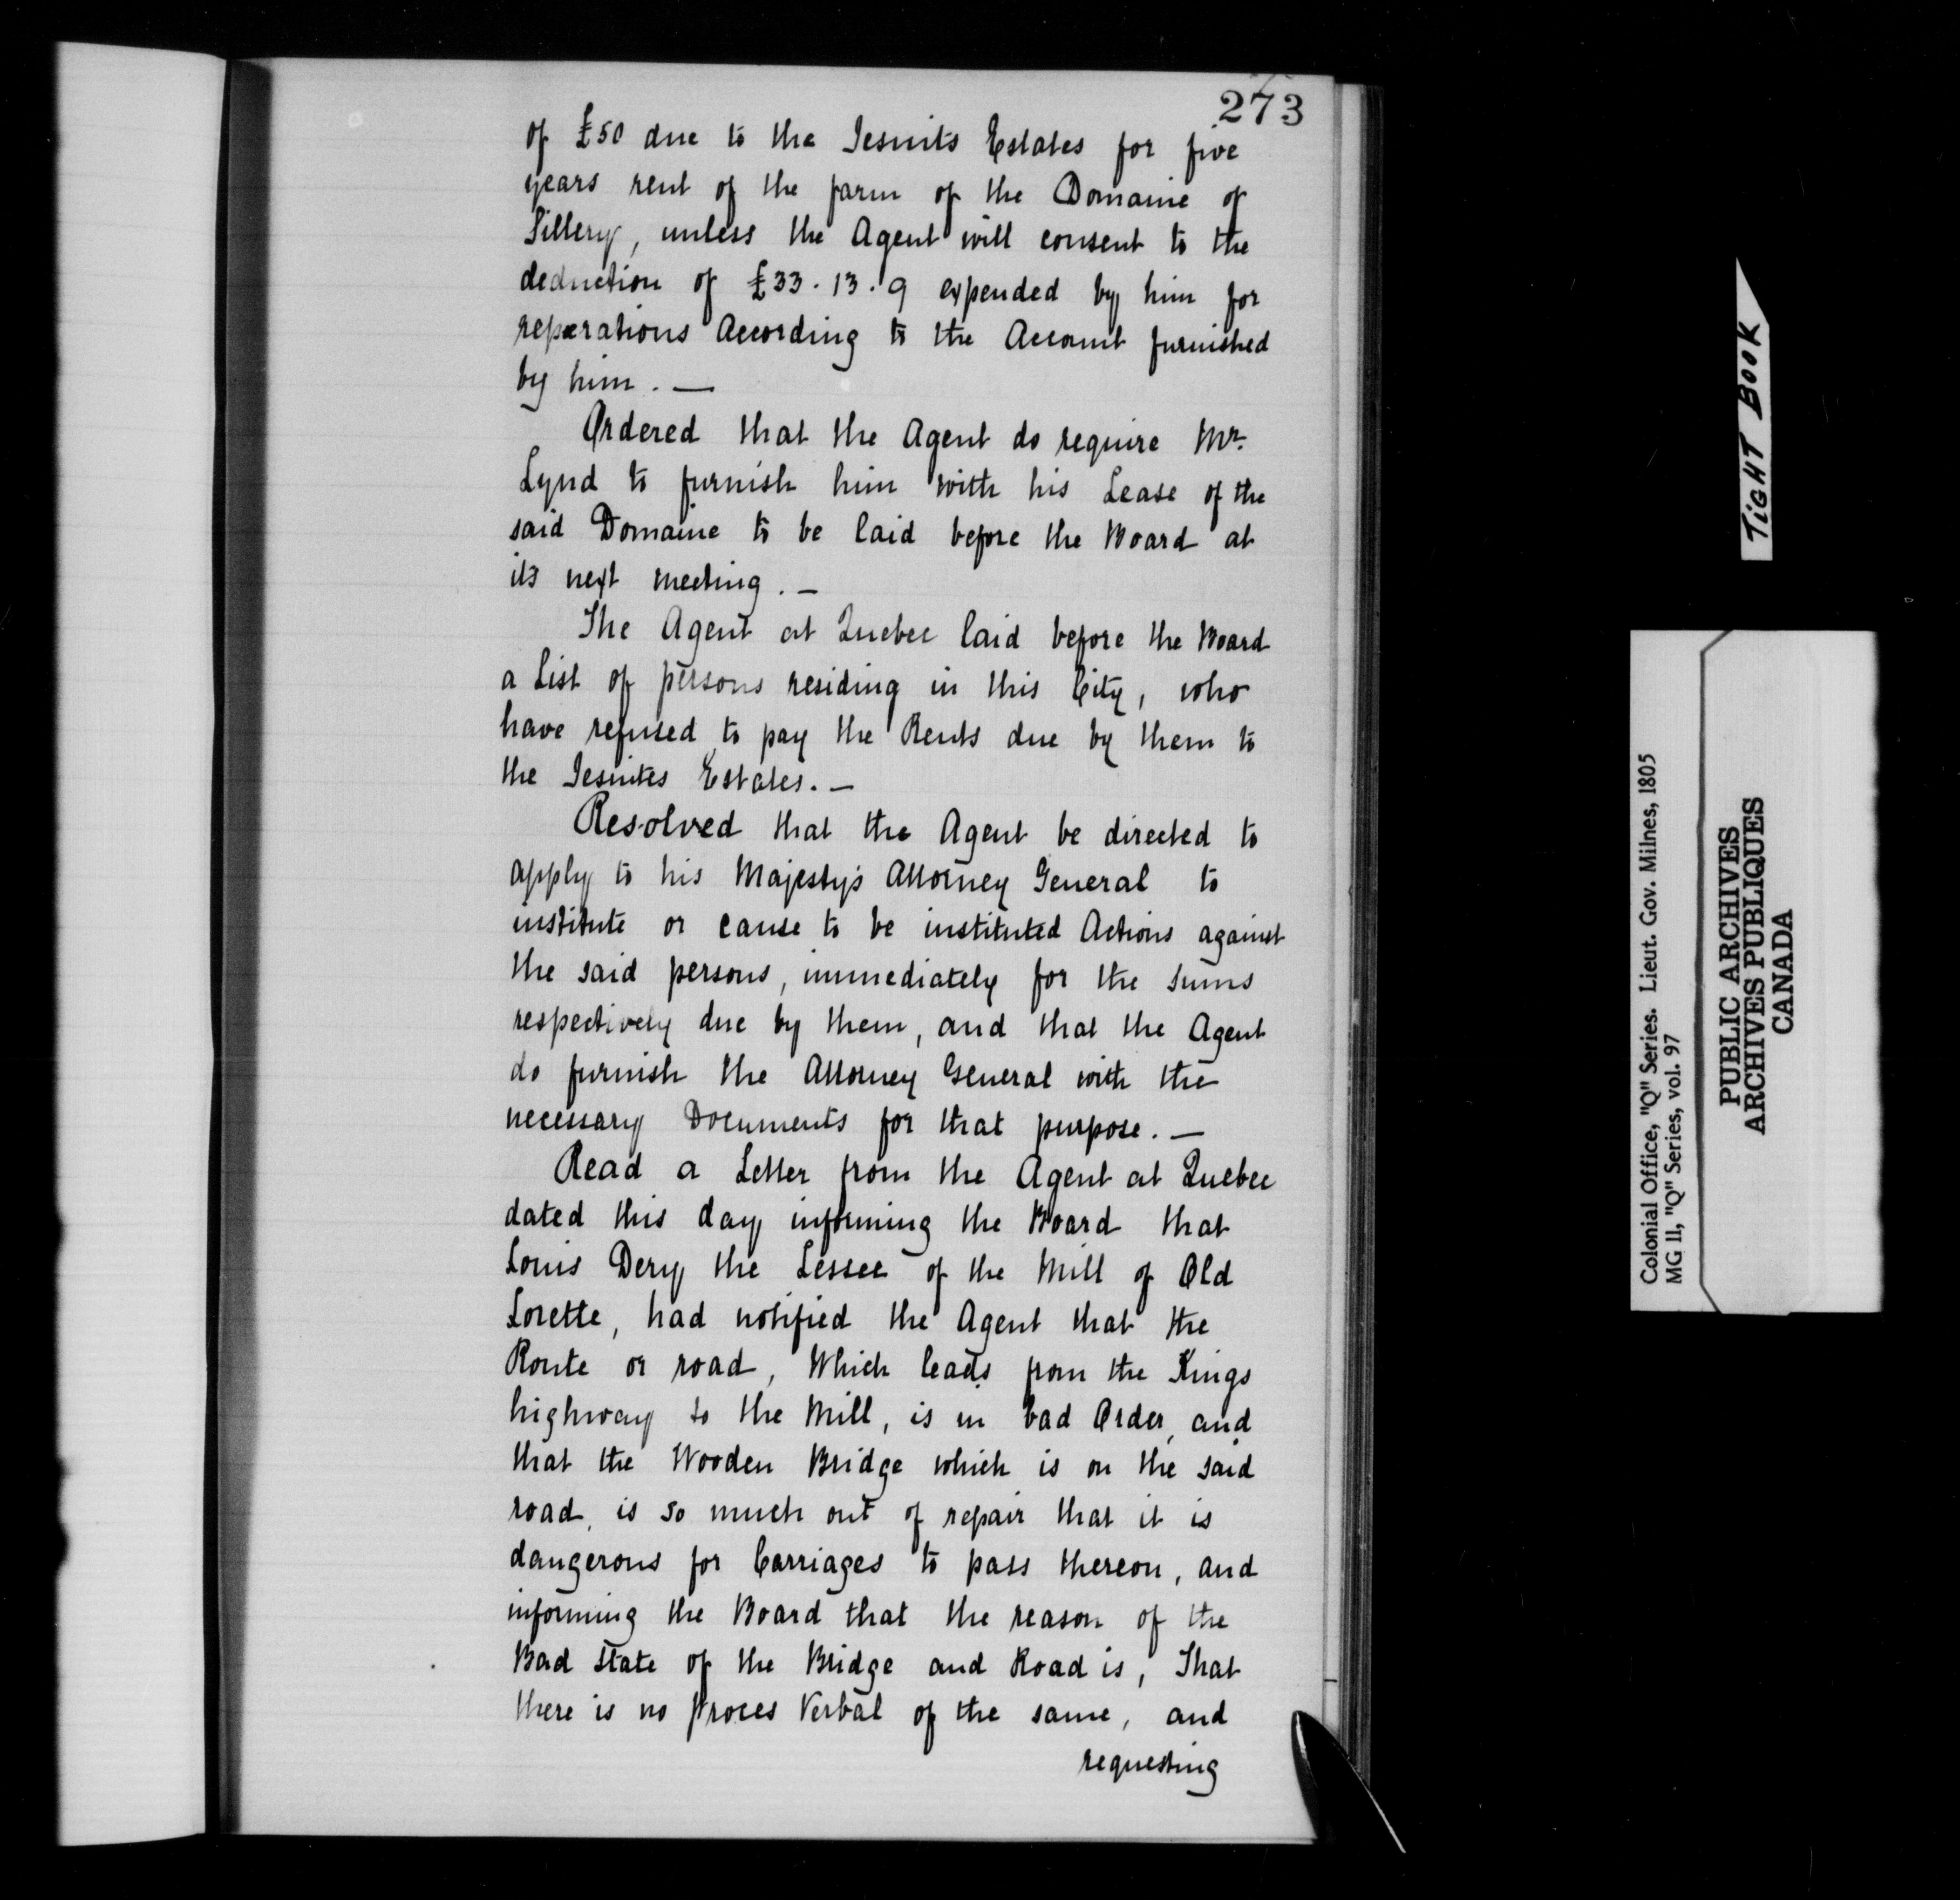 273
of £50 due to the Jesuits Estates for five
years rent of the farm of the Domaine of
Sillery, unless the Agent will consent to the
deduction of £33.13.9 expended by him for
reparations According to the Account furnished
by him. —
Ordered that the Agent do require Mr.
Lynd to furnish him with his Lease of the
said Domaine to be laid before the Board at
its next meeting. —
The Agent at Quebec laid before the Board
a List of persons residing in this City, who
have refused to pay the Rents due by them to
the Jesuites Estates. —
Resolved that the Agent be directed to
apply to his Majesty's Attorney General to
institute or cause to be instituted Actions against
the said persons, immediately for the sums
respectively due by them, and that the Agent
do furnish the Attorney General with the
necessary Documents for that purpose. —
Read a Letter from the Agent at Quebec
dated this day informing the Board that
Louis Dery the Lessee of the Mill of Old
Lorette, had notified the Agent that the
Route or road, Which leads from the Kings
highway to the Mill, is in bad Order, and
that the Wooden Bridge which is on the said
road, is so much out of repair that it is
dangerous for Carriages to pass thereon, and
informing the Board that the reason of the
Bad state of the Bridge and Road is, That
there is no Proces Verbal of the same, and
requesting
TIGHT BOOK
Colonial Office, "Q" Series. Lieut. Gov. Milnes, 1805
MG 11, "Q" Series, vol. 97
PUBLIC ARCHIVES
ARCHIVES PUBLIQUES
CANADA